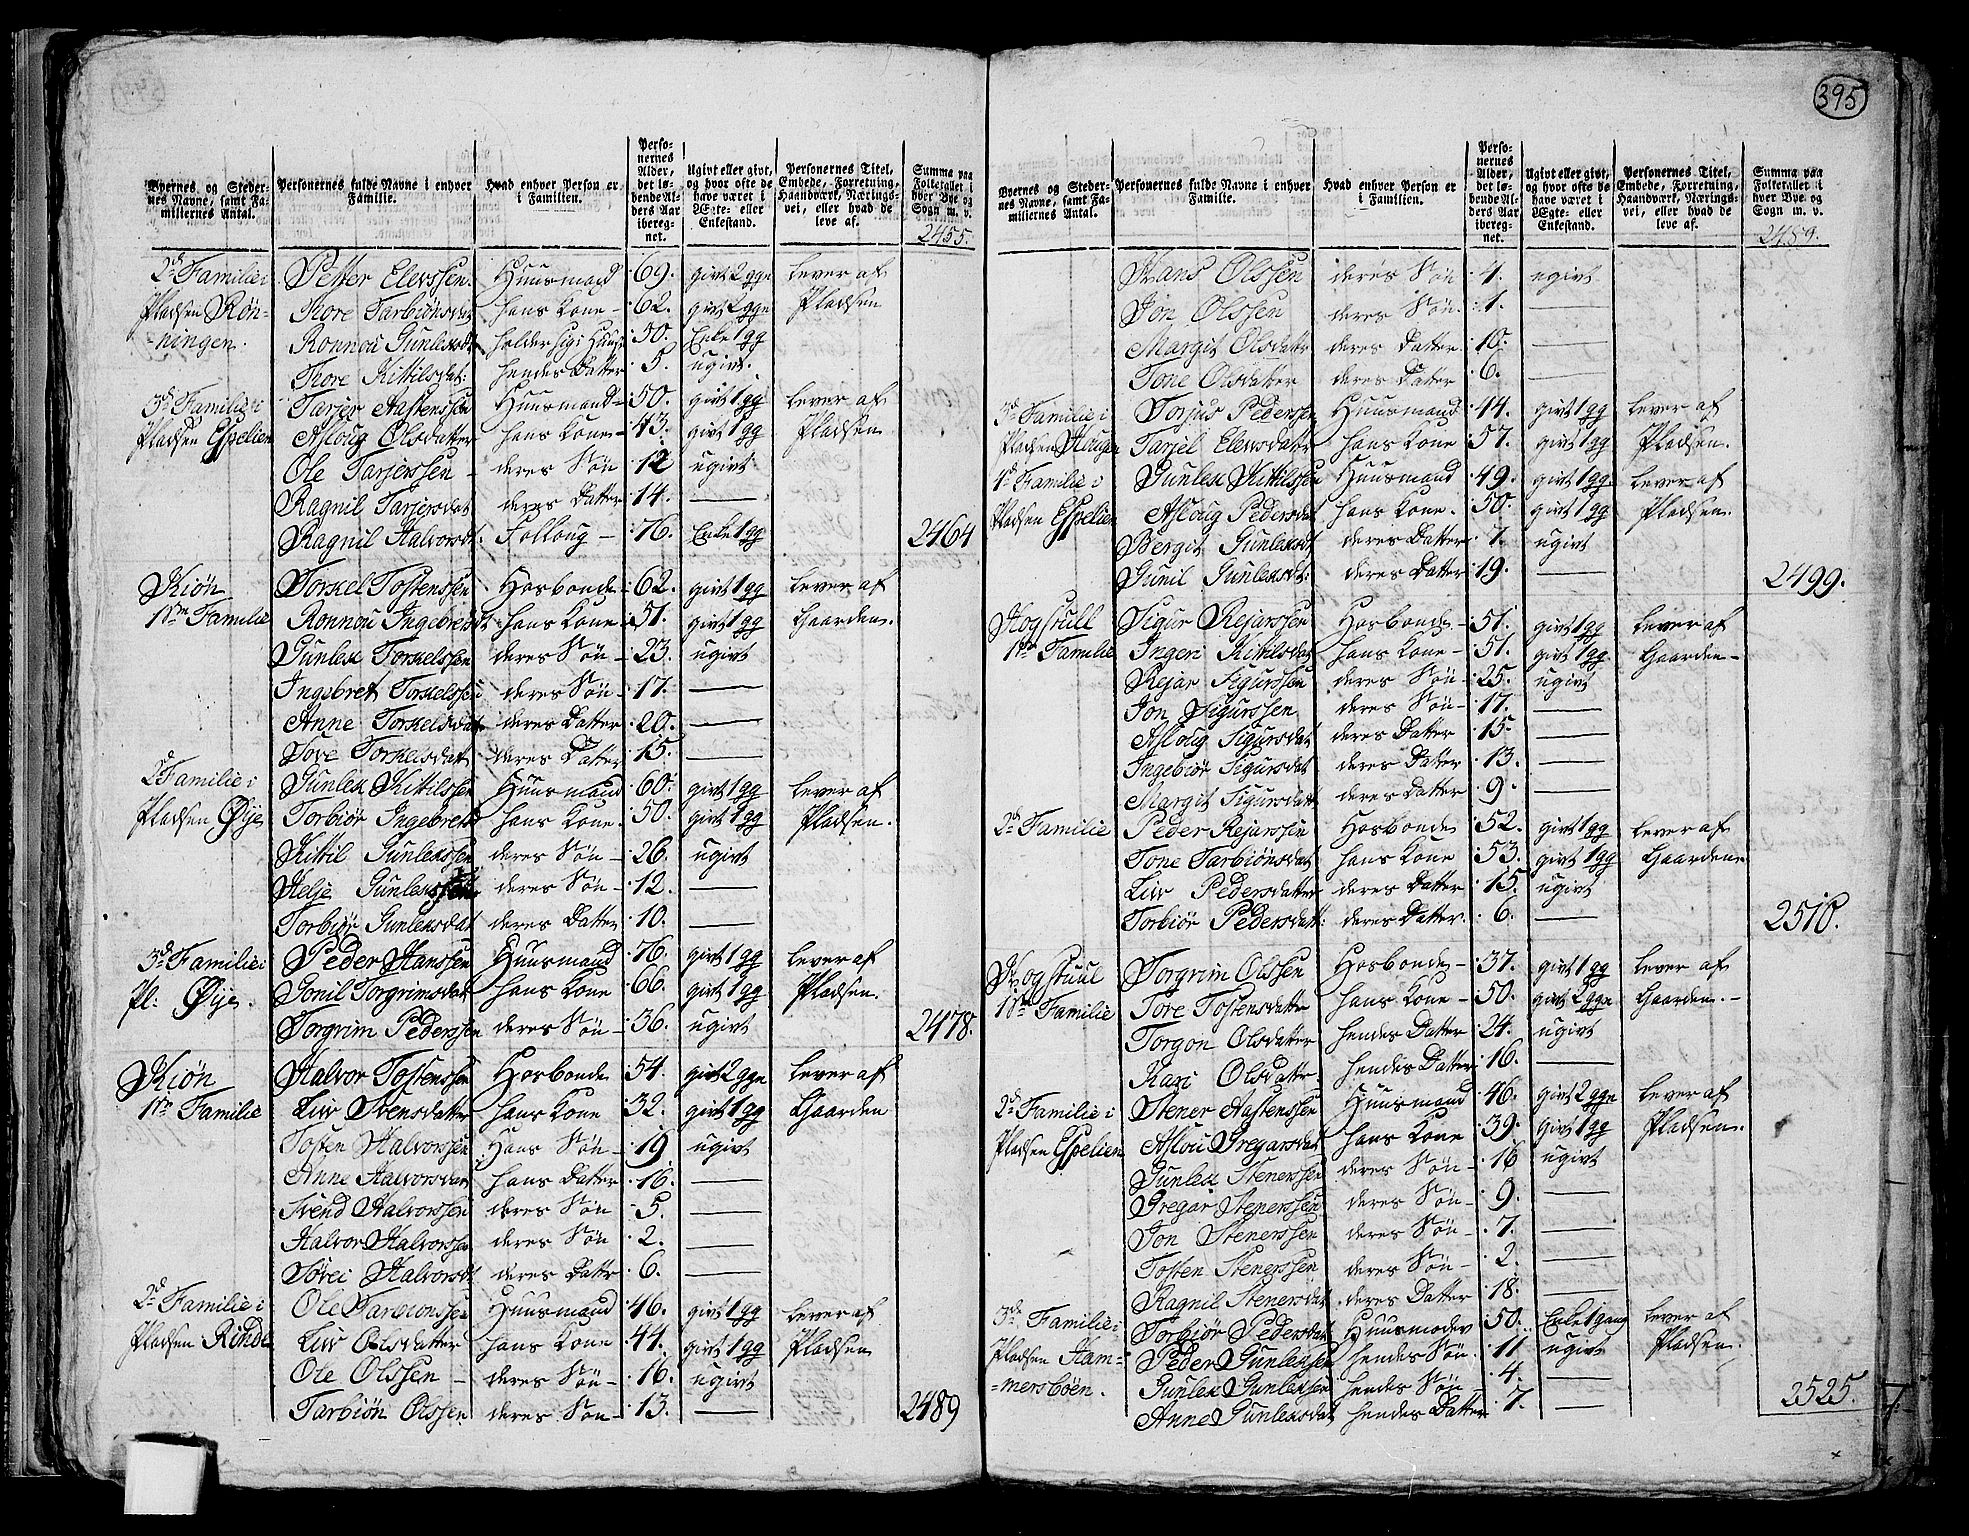 395
Byernes og Steder- nes Navne, samt Fa- miliernes Antal. | Personernes fulde Navne i enhver Familie. | Hvad enhver Person er i Familien. | Perso- nernes Alder, det lø- bende Al- ders Aar iberegnet. | Ugivt eller givt, og hvor ofte de have været i Ægte- eller Enkestand. | Personernes Titel, Embede, Forretning, Haandværk, Nærings- vei, eller hvad de leve af. | Summa paa Folketallet i hver Bye og Sogn m. v.
2455.
2d Familie i Petter Elevssen. Huusmand 69. givt 2 gge lever af
Pladsen Røn- Tore Tarbiønsdat hans Kone 62. givt 2 gge Pladsen
-ningen. Ronnou Gunleksdt holder sig i Huus 50. Enke 1 gg
Tore Kittilsdat: hendes Datter 5. ugivt.
3d Familie i Tarjer Aastenssen Huusmand 50. givt 1 gg lever af
Pladsen Espelien Asloug Olsdatter hans Kone 43. givt 1 gg Pladsen
Ole Tarjerssen deres Søn 12 ugivt
Ragnil Tarjersdat deres Datter 14. —
Ragnil Halvorsdt. Folloug 76. Enke 1 gg 2464
Kiøn Torkel Tostenssen Hosbonde 62. givt 1 gg lever af
1ste Familie Ronnou Ingebretsdt hans Kone 51. givt 1 gg Gaarden.
Gunlek Torkelssen deres Søn 23. ugivt
Ingebret Torkelssen deres Søn 17. —
Anne Torkelsdat deres Datter 20. —
Tove Torkelsdatt deres Datter 15. —
2d Familie i Gunlek Kittilssen Huusmand 60. givt 1 gg lever af
Pladsen Øye Torbiør Ingebretsd hans Kone 50. givt 1 gg Pladsen.
Kittil Gunlekssen deres Søn 26. ugivt
Helje Gunlekssen deres Søn 12. —
Torbiør Gunleksdat deres Datter 10. —
3d Familie i Peder Hanssen Huusmand 76. givt 1 gg lever af
Pl: Øye. Gonil Torgrimsdat hans Kone 66. givt 1 gg Pladsen.
Torgrim Pederssen deres Søn 36. ugivt 2478.
Kiøn Halvor Tostenssen Hosbonde 54. givt 2 gge lever af
1ste Familie Liv Svensdatter hans Kone 32. givt 1 gg Gaarden
Tosten Halvorssen Hans Søn 19 ugivt
Anne Halvorsdat hans Datter 16. —
Svend Halvorssen deres Søn 5. —
Halvor Halvorssen deres Søn 2. —
Sørei Halvorsdt deres Dattr 6. —
2d Familie i Ole Tarbiønssen Huusmand 46. givt 1 gg lever af
Pladsen Rihde Liv Olsdatter hans Kone 44. givt 1 gg Pladsen
Ole Olssen deres Søn 16. ugivt
Tarbiøn Olssen deres Søn 13. — 2489
Byernes og Steder- nes Navne, samt Fa- miliernes Antal. | Personernes fulde Navne i enhver Familie. | Hvad enhver Person er i Familien. | Perso- nernes Alder, det lø- bende Al- ders Aar iberegnet. | Ugivt eller givt, og hvor ofte de have været i Ægte- eller Enkestand. | Personernes Titel, Embede, Forretning, Haandværk, Nærings- vei, eller hvad de leve af. | Summa paa Folketallet i hver Bye og Sogn m. v.
2489.
Hans Olssen deres Søn 4. ugivt
Jon Olssen deres Søn 1. —
Margit Olsdattr deres Datter 10. —
Tone Olsdatter deres Datter 6. —
3d Familie i Torjus Pederssen Huusmand 44. givt 1 gg lever af
Pladsen Haugen Tarjel Elevsdattr hans Kone 57. givt 1 gg Pladsen.
4d Familie i Gunlek Kittilssen Huusmand 49. givt 1 gg. lever af
Pladsen Espelien Asloug Pedersdat hans Kone. 50. givt 1 gg Pladsen.
Bergit Gunleksdt deres Datter 7. ugivt
Gunil Gunleksdt: deres Datter 19. — 2499.
Hogstull Sigur Rejarssen Hosbonde 51. givt 1 gg lever af
1ste Familie Ingeri Kittilsdat hans Kone 51. givt 1 gg. Gaarden
Rejar Sigurssen deres Søn 25. ugivt
Jon Sigurssen deres Søn 17. —
Asloug Sigursdat deres Datter 15. —
Ingebiør Sigursdat deres Datter 13. —
Margit Sigursdatt deres Datter 9. —
2d Familie Peder Rejarssen Hosbonde 52. givt 1 gg lever af
Tone Tarbiønsdat hans Kone 53. givt 1 gg Gaarden
Liv Pedersdatter deres Datter 15. ugivt
Torbiør Pedersdatt: deres Datter. 6. — 2510.
Hogstuul Torgrim Olssen Hosbonde 37. givt 1 gg lever af
1ste Familie Tore Tostensdatter hans Kone 50. givt 2 gge Gaarden.
Torgon Olsdatter hendes Datter 24. ugivt
Kari Olsdattr hendes Datter 16. —
2d Familie i Stener Aastenssen Huusmand 46. givt 2 gge lever af
Pladsen Espelien Aslou Gregarsdat hans Kone 39. givt 1 gg Pladsen.
Gunlek Stenerssen deres Søn 16 ugivt
Gregar Stenerssen deres Søn 9. —
Jon Stenerssen deres Søn 7. —
Tosten Stenerssen deres Søn 2. —
Ragnil Stenersdat deres Datter 18. —
3d. Familie i Torbiør Pedersdat Huusmoder 50. Enke 1 gang lever af
Pladsen Ham- Peder Gunlekssen hendes Søn. 11 ugivt Pladsen.
-mersbøen. Gunlek Gunlekssen hendes Søn 4. —
Anne Gunleksdat hendes Datter 7. — 2525.